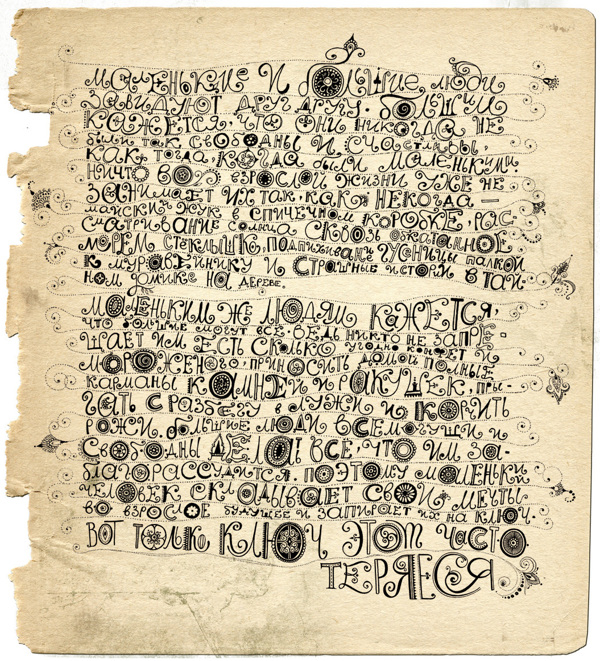 маленькие и большие люди
завидуют друг другу. большим
кажется, что они никогда не
были так свободны и счастливы,
как тогда, когда были маленькими.
ничто во взрослой жизни уже не
занимает их так, как некогда —
майский жук в спичечном коробке, рас-
сматривание солнца сквозь обкатанное
морем стеклышко, подпихивание гусеницы палкой
к муравейнику и страшные истории в тай-
ном домике на дереве.
маленьким же людям кажется,
что большие могут всё. ведь никто не запре-
щает им есть сколько угодно конфет и
мороженого, приносить домой полные
карманы камней и ракушек, пры-
гать с разбегу в лужи и корчить
рожи. большие люди всемогущи и
свободны делать всё, что им за-
благорассудится. поэтому маленький
человек складывает свои мечты
во взрослое будущее и запирает их на ключ.
вот только ключ этот часто
теряется